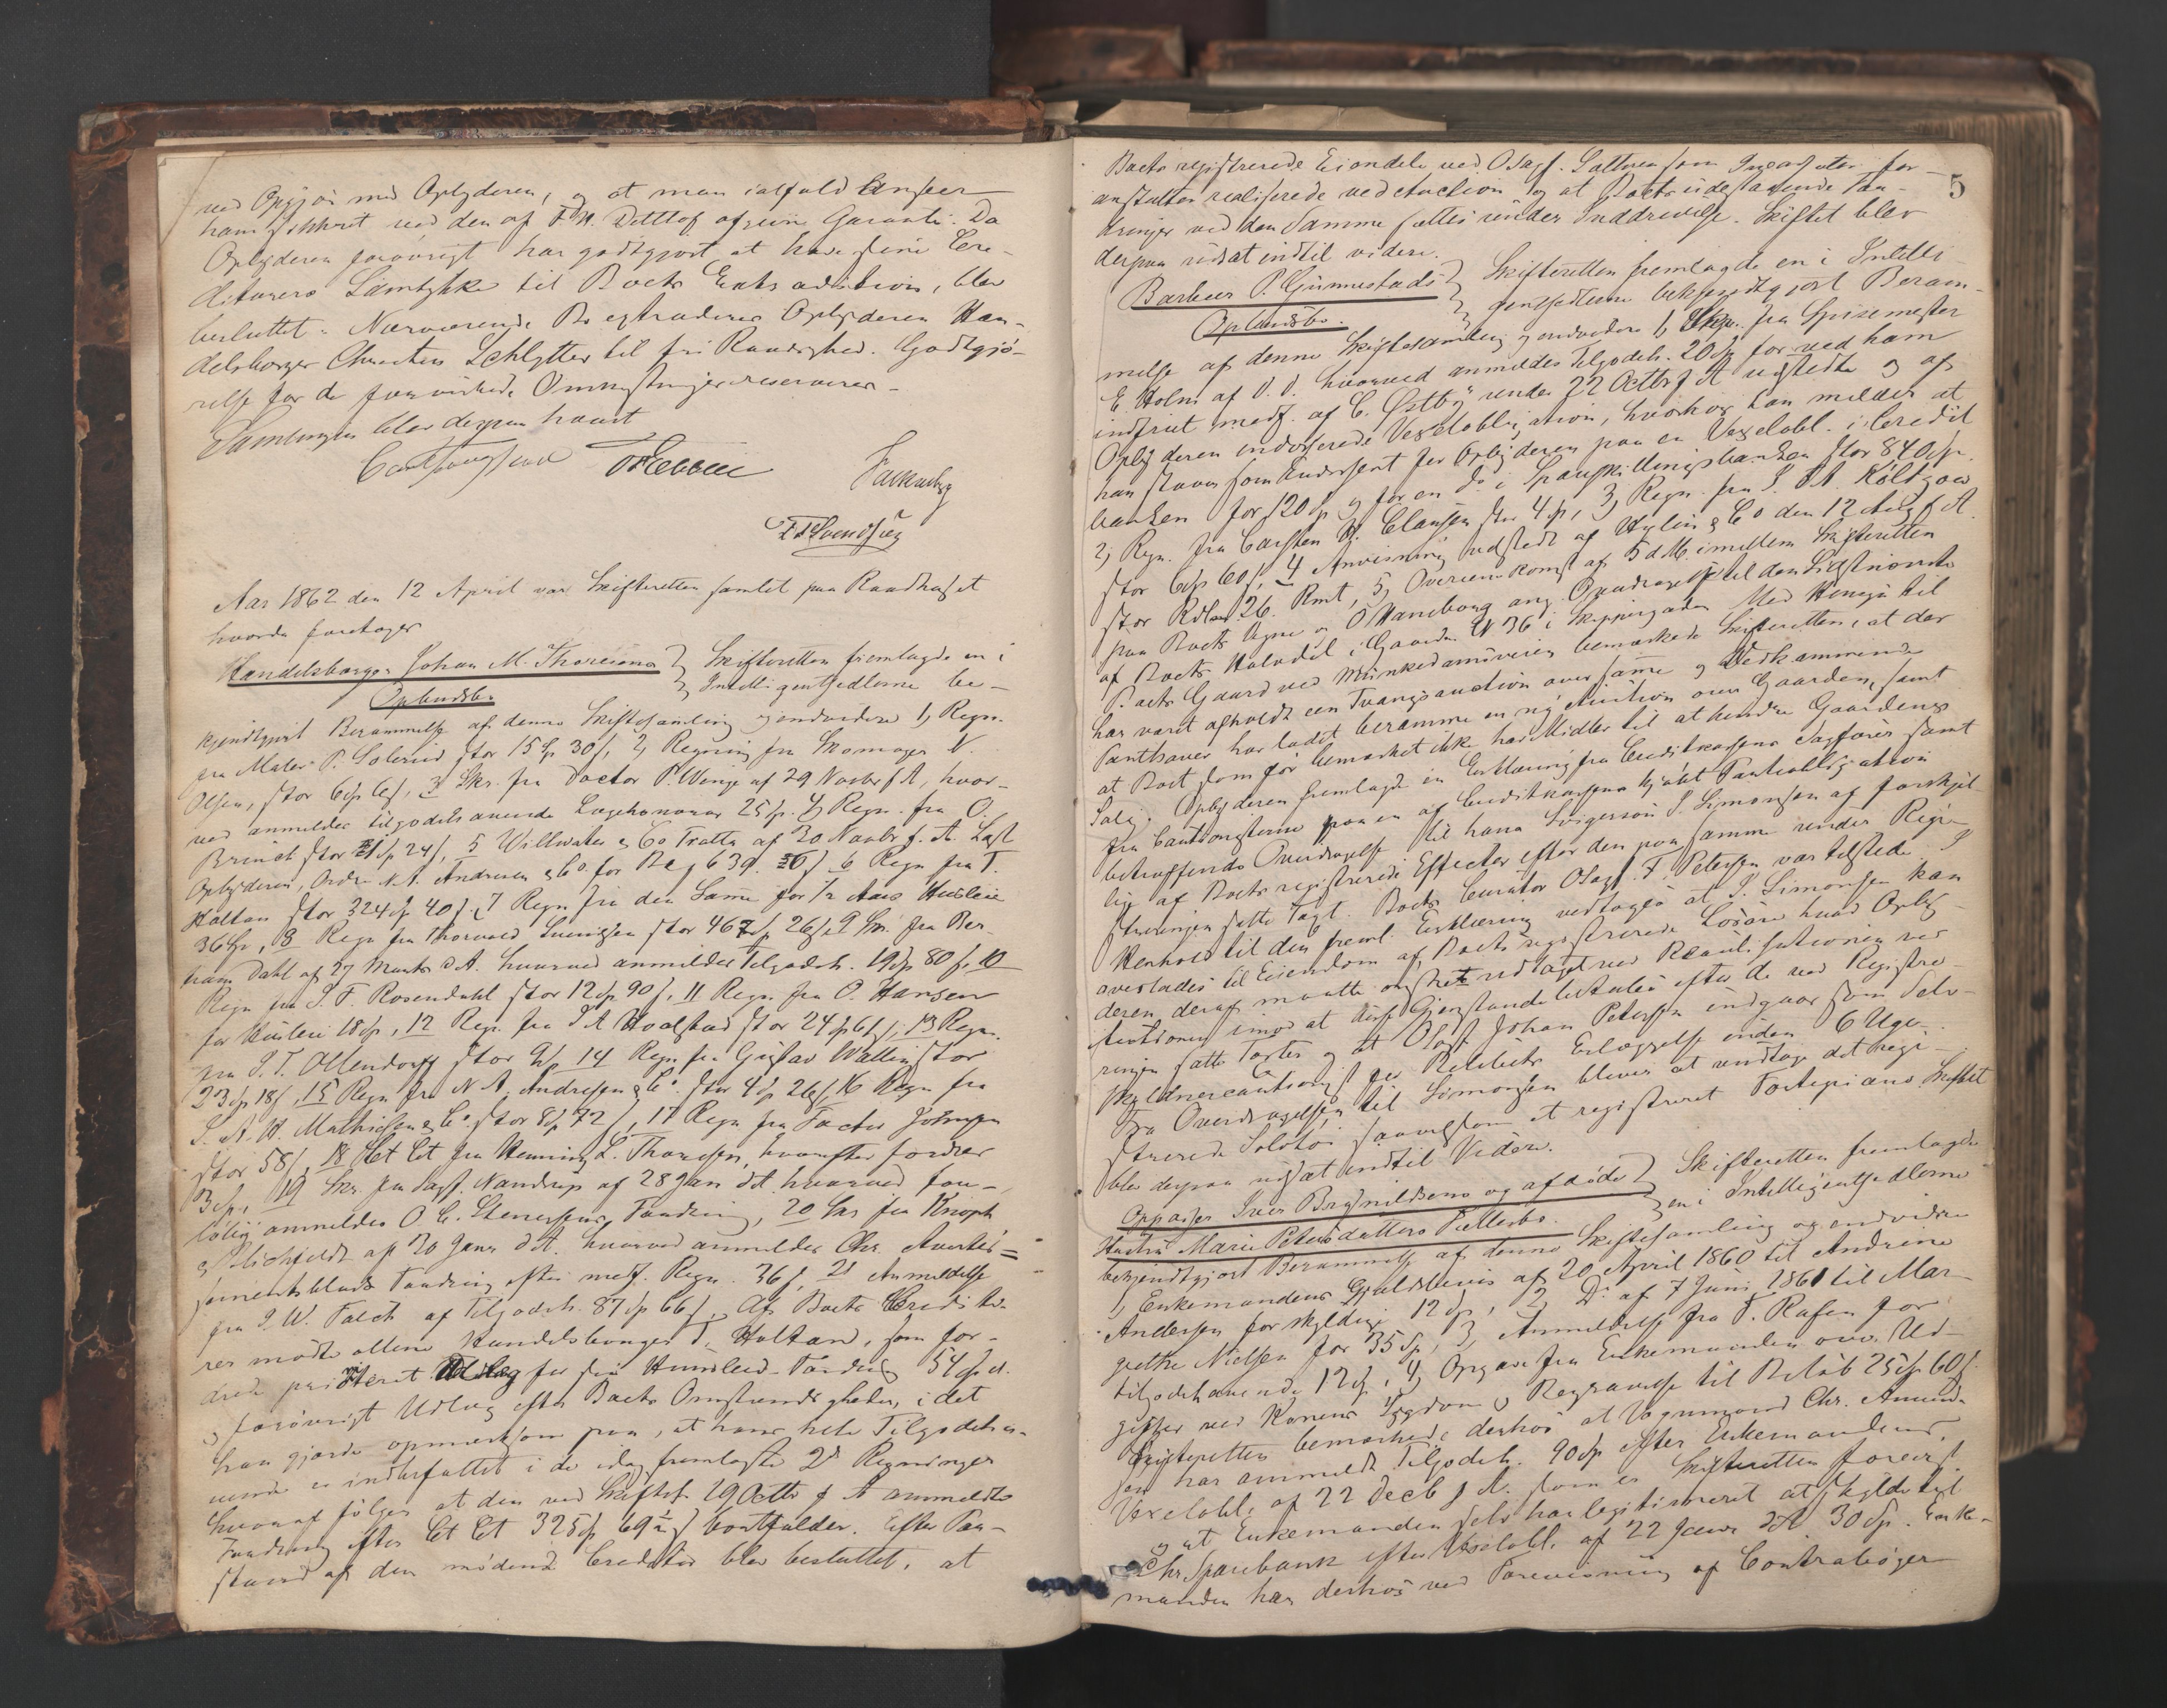 ved Opgjør med Opbyderen, og at man ialfald anseer
ham sikkret ved den af F. N. Ditlof afgivne Garanti. Da
Opbyderen forøvrigt har godtgjort at have sine Cre-
ditorers Samtykke til Boets Extradition, blev
besluttet: Nærværende Bo extraderes Opbyderen Han-
delsborger Christen Schlytter til fri Raadighed. Godtgjø-
relse for de forvirkede Omnystninger reserveres -
Samlingen blev derpaa hævet
Falkenberg
F Svendsen
Aar 1862 den 12 April var Skifteretten samlet paa Raadhuset
hvorda foretoges
Handelsborger Johan M. Thoresens Skifteretten fremlagde en i
Opbudsbo Intelligentsedlerne be-
kjendtgjort Berammelse af denne Skiftesamling og endvidere 1, Regn.
fra Maler P. Solerud stor 15 Sp 30 s, 2, Regning fra Skomager N.
Olsen, stor 6 Sp 6 s, 3 Skr. fra Doctor P. Winge af 29 Novbr f A, hvor-
ved anmeldes tilgodehavende Lægehonorar 25 Sp. 4 Regn. fra O.
Brinch stor 1 Sp 24 s, 5 Willwater & Co Tratta af 20 Novbr f. A. Last
Opbyderen, Ordre N. A. Andresen & Co. for 639. 6 Regn fra T.
Holtan stor 324 Sp 40 s. 7 Regn fra den Samme for 1/2 Aars Huusleie
36 Sp, 8 Regn fra Thorvald Svendsen stor 467 Sp 26 s, 9 Skr. fra Ber-
tram Dahl af 27 Marts d A. hvorved anmeldes Tilgodeh. 19 Sp 80 s. 10
Regn fra S. F. Rosendahl stor 12 Sp 90 s, 11 Regn. fra O. Hansen
for Huusleie 18 Sp, 12 Regn. fra S A Hoalstad stor 24 Sp 6 s, 13 Regn.
fra S. T. Ollendorff stor 9 Sp 14 Regn. fra Gustav Wallin stor
23 Sp 18 s, 15 Regn fra N. A. Andresen & Co. stor 4 Sp 26 s, 16 Regn fra
S. A. H. Mathiesen & Co. stor 8 Sp 72 s, 17 Regn fra Factor Johnsen
stor 58 s, 18 Ct Ct fra Henning L. Thoresen, hvorefter fordres
3 Sp, 19 Skr. fra Sagf. Nandrup af 28 Jan d A hvorved fore-
løbig anmeldes O. C. Stenersens Fordring, 20 Skr fra Knoph
& Lichfeldt af 20 Janr d A. hvorved anmeldes Chr. Averti-
sementsblads Fordring efter medf. Regn. 36 s, 21 Anmeldelse
fra P. W. Falch af Tilgodeh. 87 Sp 66 s. Af Boets Credito-
rer mødte allene Handelsborger T. Holtan, som for-
drede prioriteret Udlæg for sin Huusleie-Fordring 54 Sp.
og forøvrigt Udlæg efter Boets Omstændigheder, i det
han gjorde opmærksom paa, at hans hele Tilgodeha-
vende er indbefattet i de idag fremlagte 2de Regninger
hvoraf følger at den ved Skiftes. 29 Octbr f A anmeldte
Fordring efter Ct Ct 325 Sp 69 s bortfalder. Efter Paa-
stand af den mødende Creditor blev besluttet, at
5
Boets registrerede Eiendele ved OSagf. Lattersen som Incassator for-
anstaltes realiserede ved Auction og at Boets udestaaende For-
dringer ved den Samme sættes under Inddrivelse. Skiftet blev
derpaa udsat indtil videre.
Barbeer P. Gunnestads Skifteretten fremlagde en i Intelli-
Opbudsbo. gentsedlerne bekjendtgjort Beram-
melse af denne Skiftesamling og endvidere 1, Skr. fra Spisemester
E. Holm af D. D. hvorved anmeldes Tilgodeh. 20 Sp for ved ham
indfriet medf. af C. Østby under 22 Octbr f A udstedt og af
Opbyderen endosserede Vexelobligation, hvorhos han melder at
han staaer som Endossent for Opbyderen paa en Vexelobl. i Credit
banken for 120 Sp og for en do i Sparesk illingsbanken stor 84 Sp.
2, Regn. fra Carsten H. Clausen stor 4 Sp, 3, Regn. fra S. P. A. Koltzow
stor 6 Sp 60 s, 4 Anvisning udstedt af Hylin & Co den 12 Aug f A
stor Rdlr. 26. Rmt, 5, Overenskomst af 5 d M. imellem Skifteretten
paa Boets Vegne og O Haneborg ang. Overdragelse til den Sidstnævnte
af Boets Halvdel i Gaarden N 36 i Skippergaden. Med Hensyn til
Boets Gaard ved Munkedamsveien bemærkede Skifteretten, at der
har været afholdt een Tvangsauction over samme og Vedkommende
Panthaver har ladet beramme en ny Auction over Gaarden, samt
at Boet som før bemærket ikke har Midler til at hindre Gaardens
Salg. Opbyderen fremlagde en Erklæring fra Creditkassens Sagfører samt
fra Cautionisterne paa en af Creditkassens kjøbt Panteobligation
betræffende Overdragelse til hans Svigersøn S. Simonsen af forskjel-
lige af Boets registrerede Effecter efter den paa samme under Regi-
streringen satte Taxt. Boets Curator OSagf. F. Petersen var tilstede. I
Henhold til den freml. Erklæring vedtoges at S. Simonsen kan
overlades til Eiendom af Boets registrerede Løsøre hvad Opby-
deren deraf maatte ønsket udtaget ved Realisationen ved
Auctionen imod at disse Gjenstande betales efter de ved Registre-
ringen satte Taxter og at OSagf Johan Petersen indgaar som Selv-
skyldnercautionist for Beløbets Erlæggelse inden 6 Uger.
Fra Overdragelsen til Simonsen bliver at undtage det regi-
strerede Sølvtøi saavelsom et registreret Fortepiano Skiftet
blev derpaa udsat indtil Videre.
Oppasser Iver Brynildsens og afdøde Skifteretten fremlagde
Hustru Marie Petersdatters Fællesbo. en i Intelligentsedlerne
bekjendtgjort Berammelse af denne Skiftesamling og endvidere
1, Enkemandens Gjeldsbevis af 20 April 1860 til Andrine
Andersen for skyldig 12 Sp, 2, Do af 7 Juni 1861 til Mar-
grethe Nielsen for 35 Sp, 3, Anmeldelse fra T. Rafen for
tilgodehavende 12 Sp, 4, Opgave fra Enkemanden over Ud-
gifter ved Konens Sygdom og Begravelse til Beløb 25 Sp 60 s.
Skifteretten bemærkede derhos at Vognmand Chr. Amund-
sen har anmeldt Tilgodeh. 90 Sp efter Enkemandens
Vexelobl. af 22 Decb f. A. som er Skifteretten foreviist
og at Enkemanden selv har legitimeret at skylde til
Chr. Sparebank efter Vexelobl. af 22 Janr d A 30 Sp. Enke-
manden har derhos ved Forevisning af Contrabøger